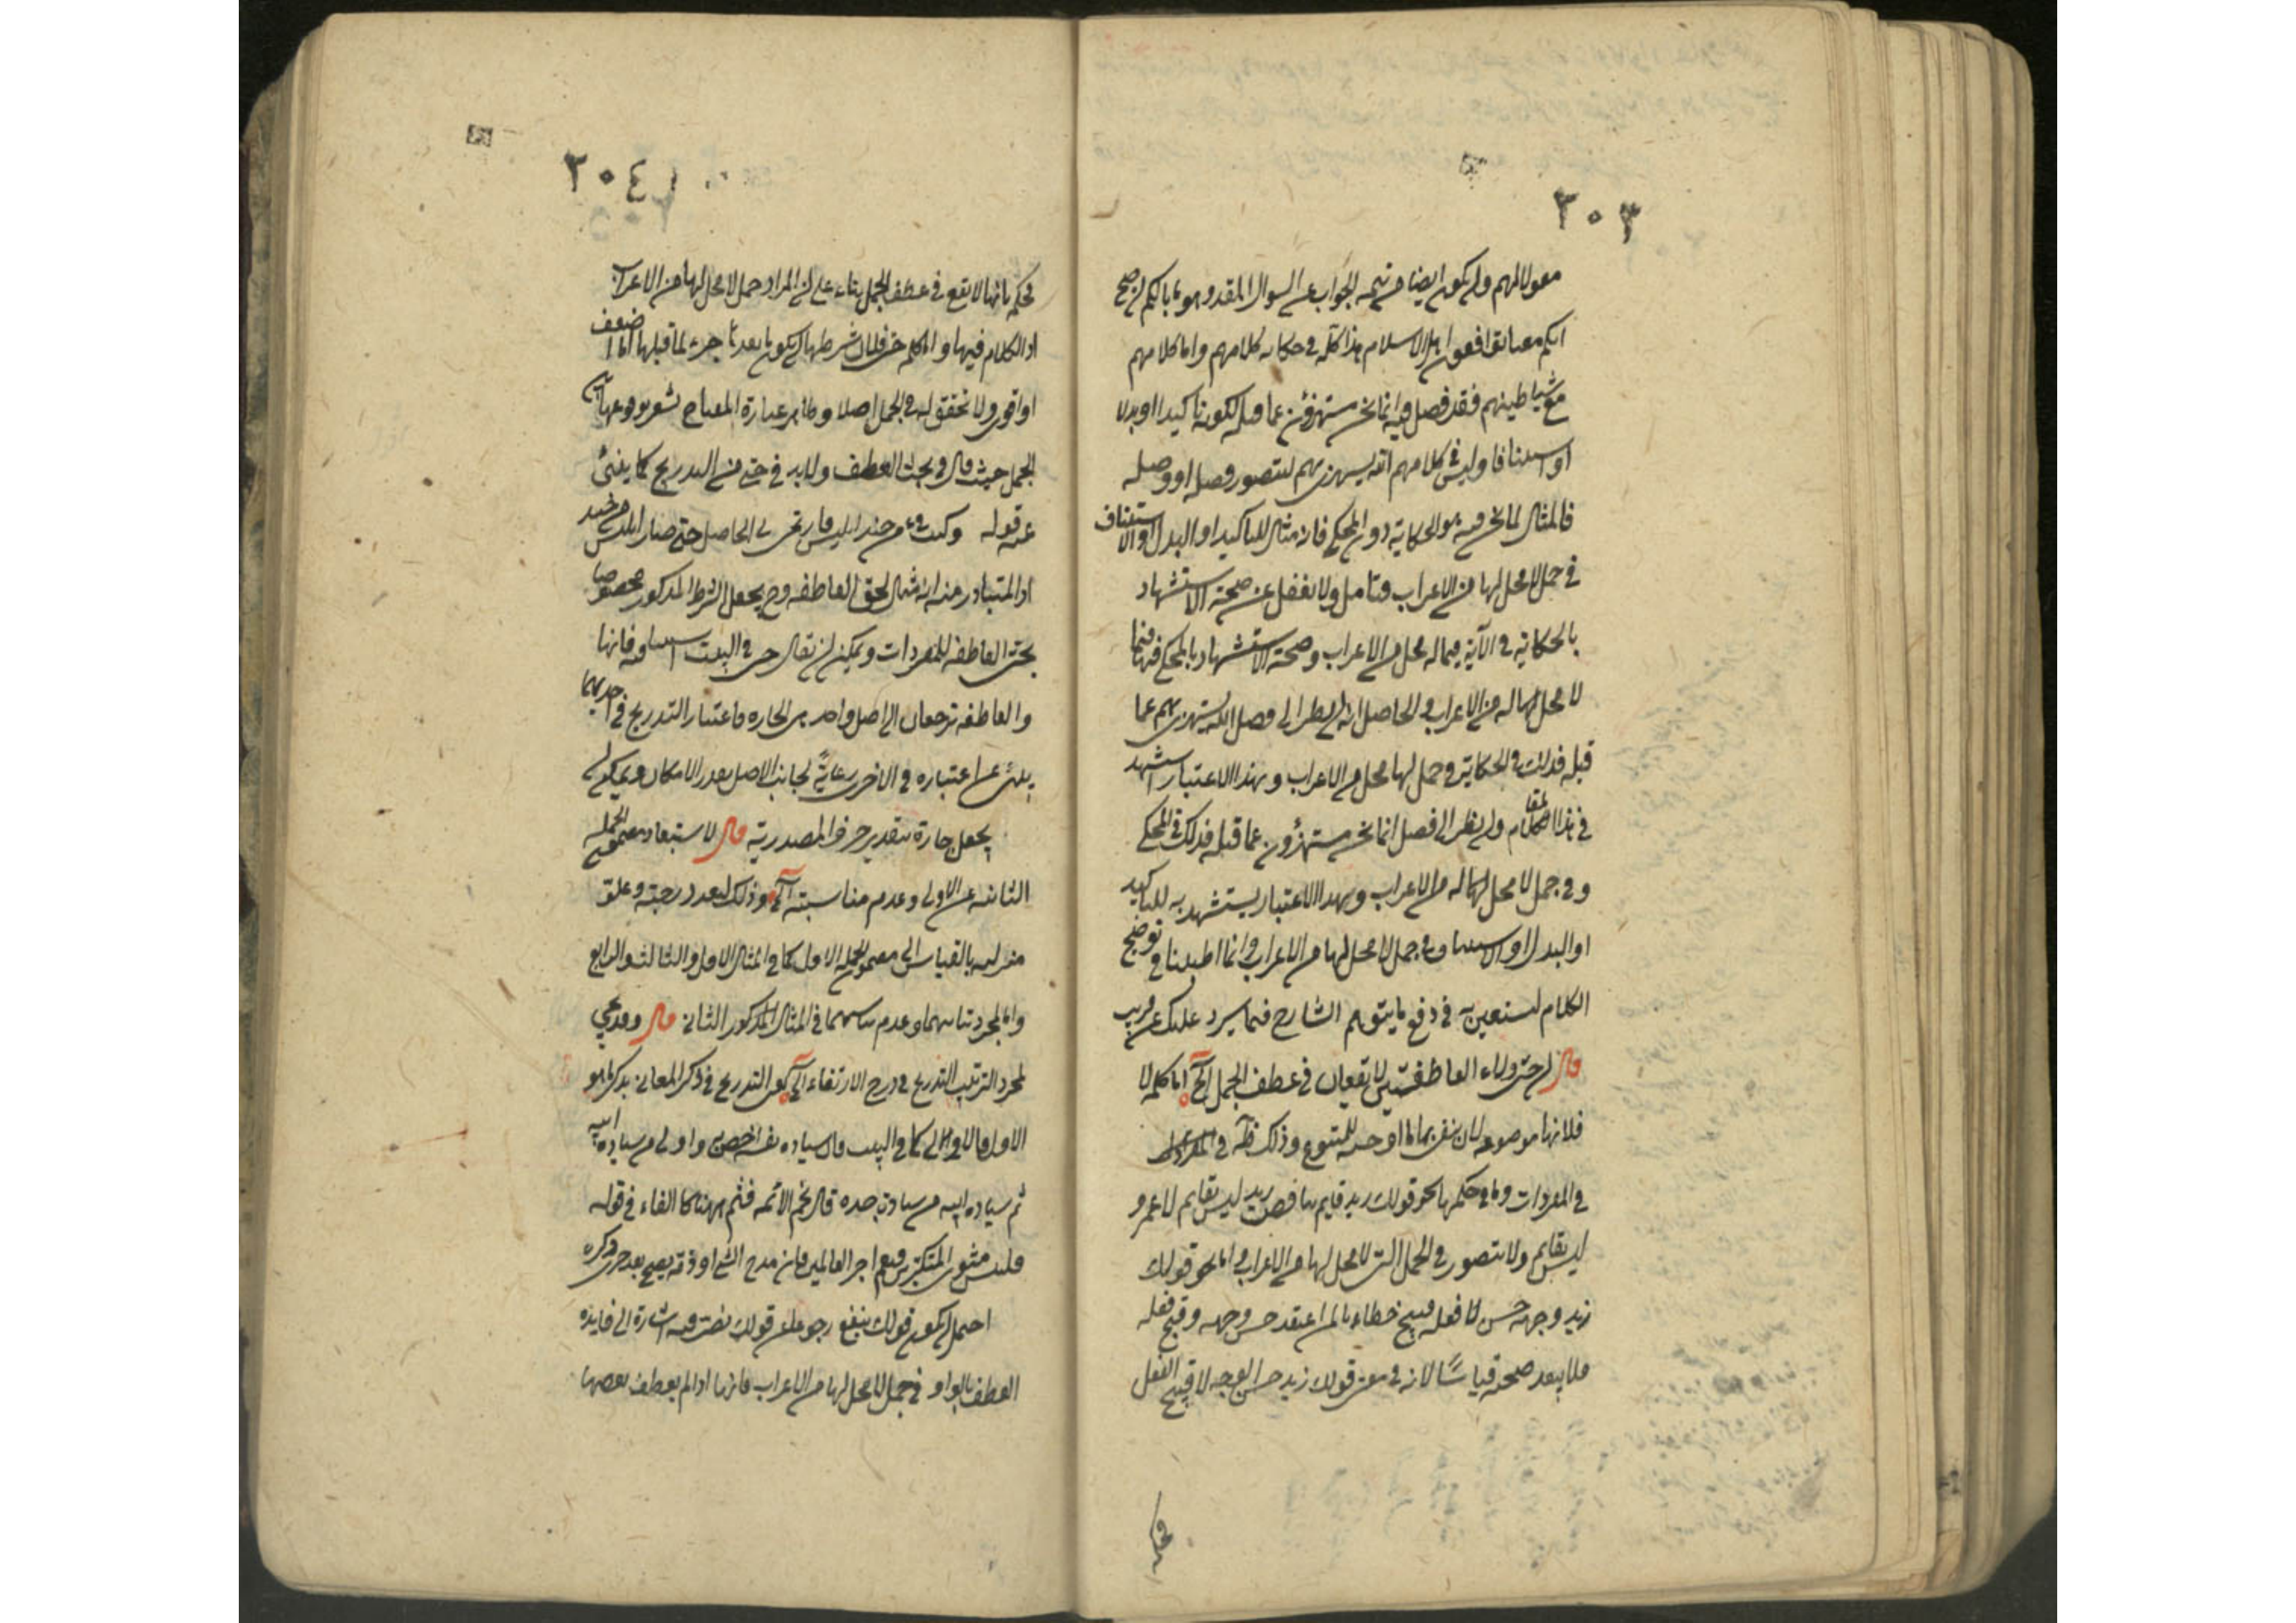 ٣٠٣
مقولا لهم وان يكون ايضا من تتمة الجواب عن السوال المقدر وهو ما بالكم ان صح
انكم معنا توافقون اهل الاسلام هذا كله في حكاية كلامهم واما كلامهم
مع شياطينهم فقد فصل فيه انما نحن مستهزؤن عما قبله لكونه تاكيدا او بدلا
او استينافا وليس في كلامهم الله يستهزئ بهم ليتصور فصله او وصله
فالمثال لما نحن فيه هو الحكاية دون المحكي فانه مثال للتاكيد او البدل او الاستيناف
في جمل لا محل لها من الاعراب فتامل ولا تغفل عن صحة الاستشهاد
بالحكاية في الآية فيما له محل من الاعراب وصحة الاستشهاد بالمحكي فيها فيما
لا محل له من الاعراب والحاصل انه ان نظر الى فصل الله يستهزئ بهم عما
قبله فذلك في الحكاية وجمل لها محل من الاعراب وبهذا الاعتبار استشهد
في هذا المقام وان نظر الى فصل انما نحن مستهزؤن عما قبله فذلك في المحكي
وفي جمل لا محل لها من الاعراب وبهذا الاعتبار يستشهد به للتاكيد
او البدل او الاستيناف في جمل لا محل لها من الاعراب وانما اطنبنا في توضيح
الكلام لتستعين به في دفع ما يتوهم الشارح فيما سيرد عليك عن قريب
قال ان حتى ولاء العاطفتين لا يقعان في عطف الجمل آلخ اما كلمة لا
فلانها موضوعة لان ينفى بها ما اوجب للمتبوع وذلك ظاهر
في المفردات وما في حكمها نحو قولك زيد قايم يناقض زيد ليس بقايم لا عمرو
ليس بقايم ولا يتصور في الجمل التي لا محل لها من الاعراب واما نحو قولك
زيد وجهه حسن لا فعله قبيح خطاء بالمن اعتقد حسن وجهه وقبح فعله
فلا يبعد صحته قياسًا لانه في معنى قولك زيد حسن الوجه لا قبيح الفعل
فحكم
٣٠٤
فحكم بانها لا تقع في عطف الجمل بناء على ان المراد جمل لا محل لها من الاعراب
اذ الكلام فيها واما كلمة حتى فلان شرطها ان يكون ما بعدها جزء لما قبلها اما اضعف
او اقوى ولا تحقق له في الجمل اصلا وظاهر عبارة المفتاح تشعر بوقوعها في
الجمل حيث قال في بحث العطف ولا بد في حتى من التدريج كما ينبئ
عنه قوله وكنت فتى من جند ابليس فارتقى بي الحاصل حتى صار ابليس من جندي
اذ المتبادر منه انه مثال لحتى العاطفة وح يجعل الشرط المذكور مخصوصا
بحتى العاطفة للمفردات ويمكن ان يقال حتى في البيت استينافية فانها
والعاطفة ترجعان الى اصل واحد هي الجارة فاعتبار التدريج في احديهما
ينبئ عن اعتباره في الاخرى رعايةً لجانب الاصل بقدر الامكان ويمكن ان
يجعل جارة بتقدير حرف المصدرية قال لاستبعاد مضمون الجملة
الثانية عن الاولى وعدم مناسبته آلخ وذلك لبعد درجته وعلو
منزلته بالقياس الى مضمون الجملة الاولى كما في المثال الاول والثالث والرابع
واما لمجرد تباينهما وعدم تناسبهما في المثال المذكور الثاني قال وقد يجئ
لمجرد الترتيب والتدرج في درج الارتقاء آلخ يعني التدريج في ذكر المعاني بذكر ما هو
الاولى فالاولى كما في البيت فان سيادة نفسه اخص به واولى من سيادة ابيه
ثم سيادة ابيه من سيادة جده قال نجم الائمة فثم ههنا كالفاء في قوله
فلبئس مثوى المتكبرين ونعم اجر العالمين فان مدح الشئ او ذمه يصح بعد جرى ذكره
احتمل ان يكون قولك ينفع رجوعا عن قولك يضر وفيه اشارة الى فايدة
العطف بالواو في جمل لا محل لها من الاعراب فانها اذا لم يعطف بعضها